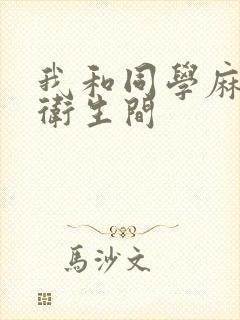 我和同學麻
衛生間
馬沙文